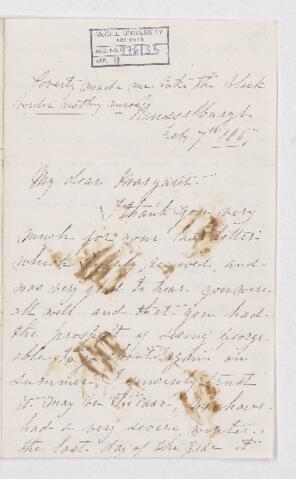 McGILL UNIVERSITY
ARCHIVES
ACC. NO. 976/35
REF. 9
Poverty made me take the black
border nothing worse
Musselburgh
Feby 7th 186
My dear Margaret
I thank you very
much for your last letter
which I duly received, and
was very glad to hear you were
all well and that you had
the prospect of seeing George
able to go about again in
summer, I sincerely trust
it may be the case, we have
had a very severe winter,
the last day of the year it